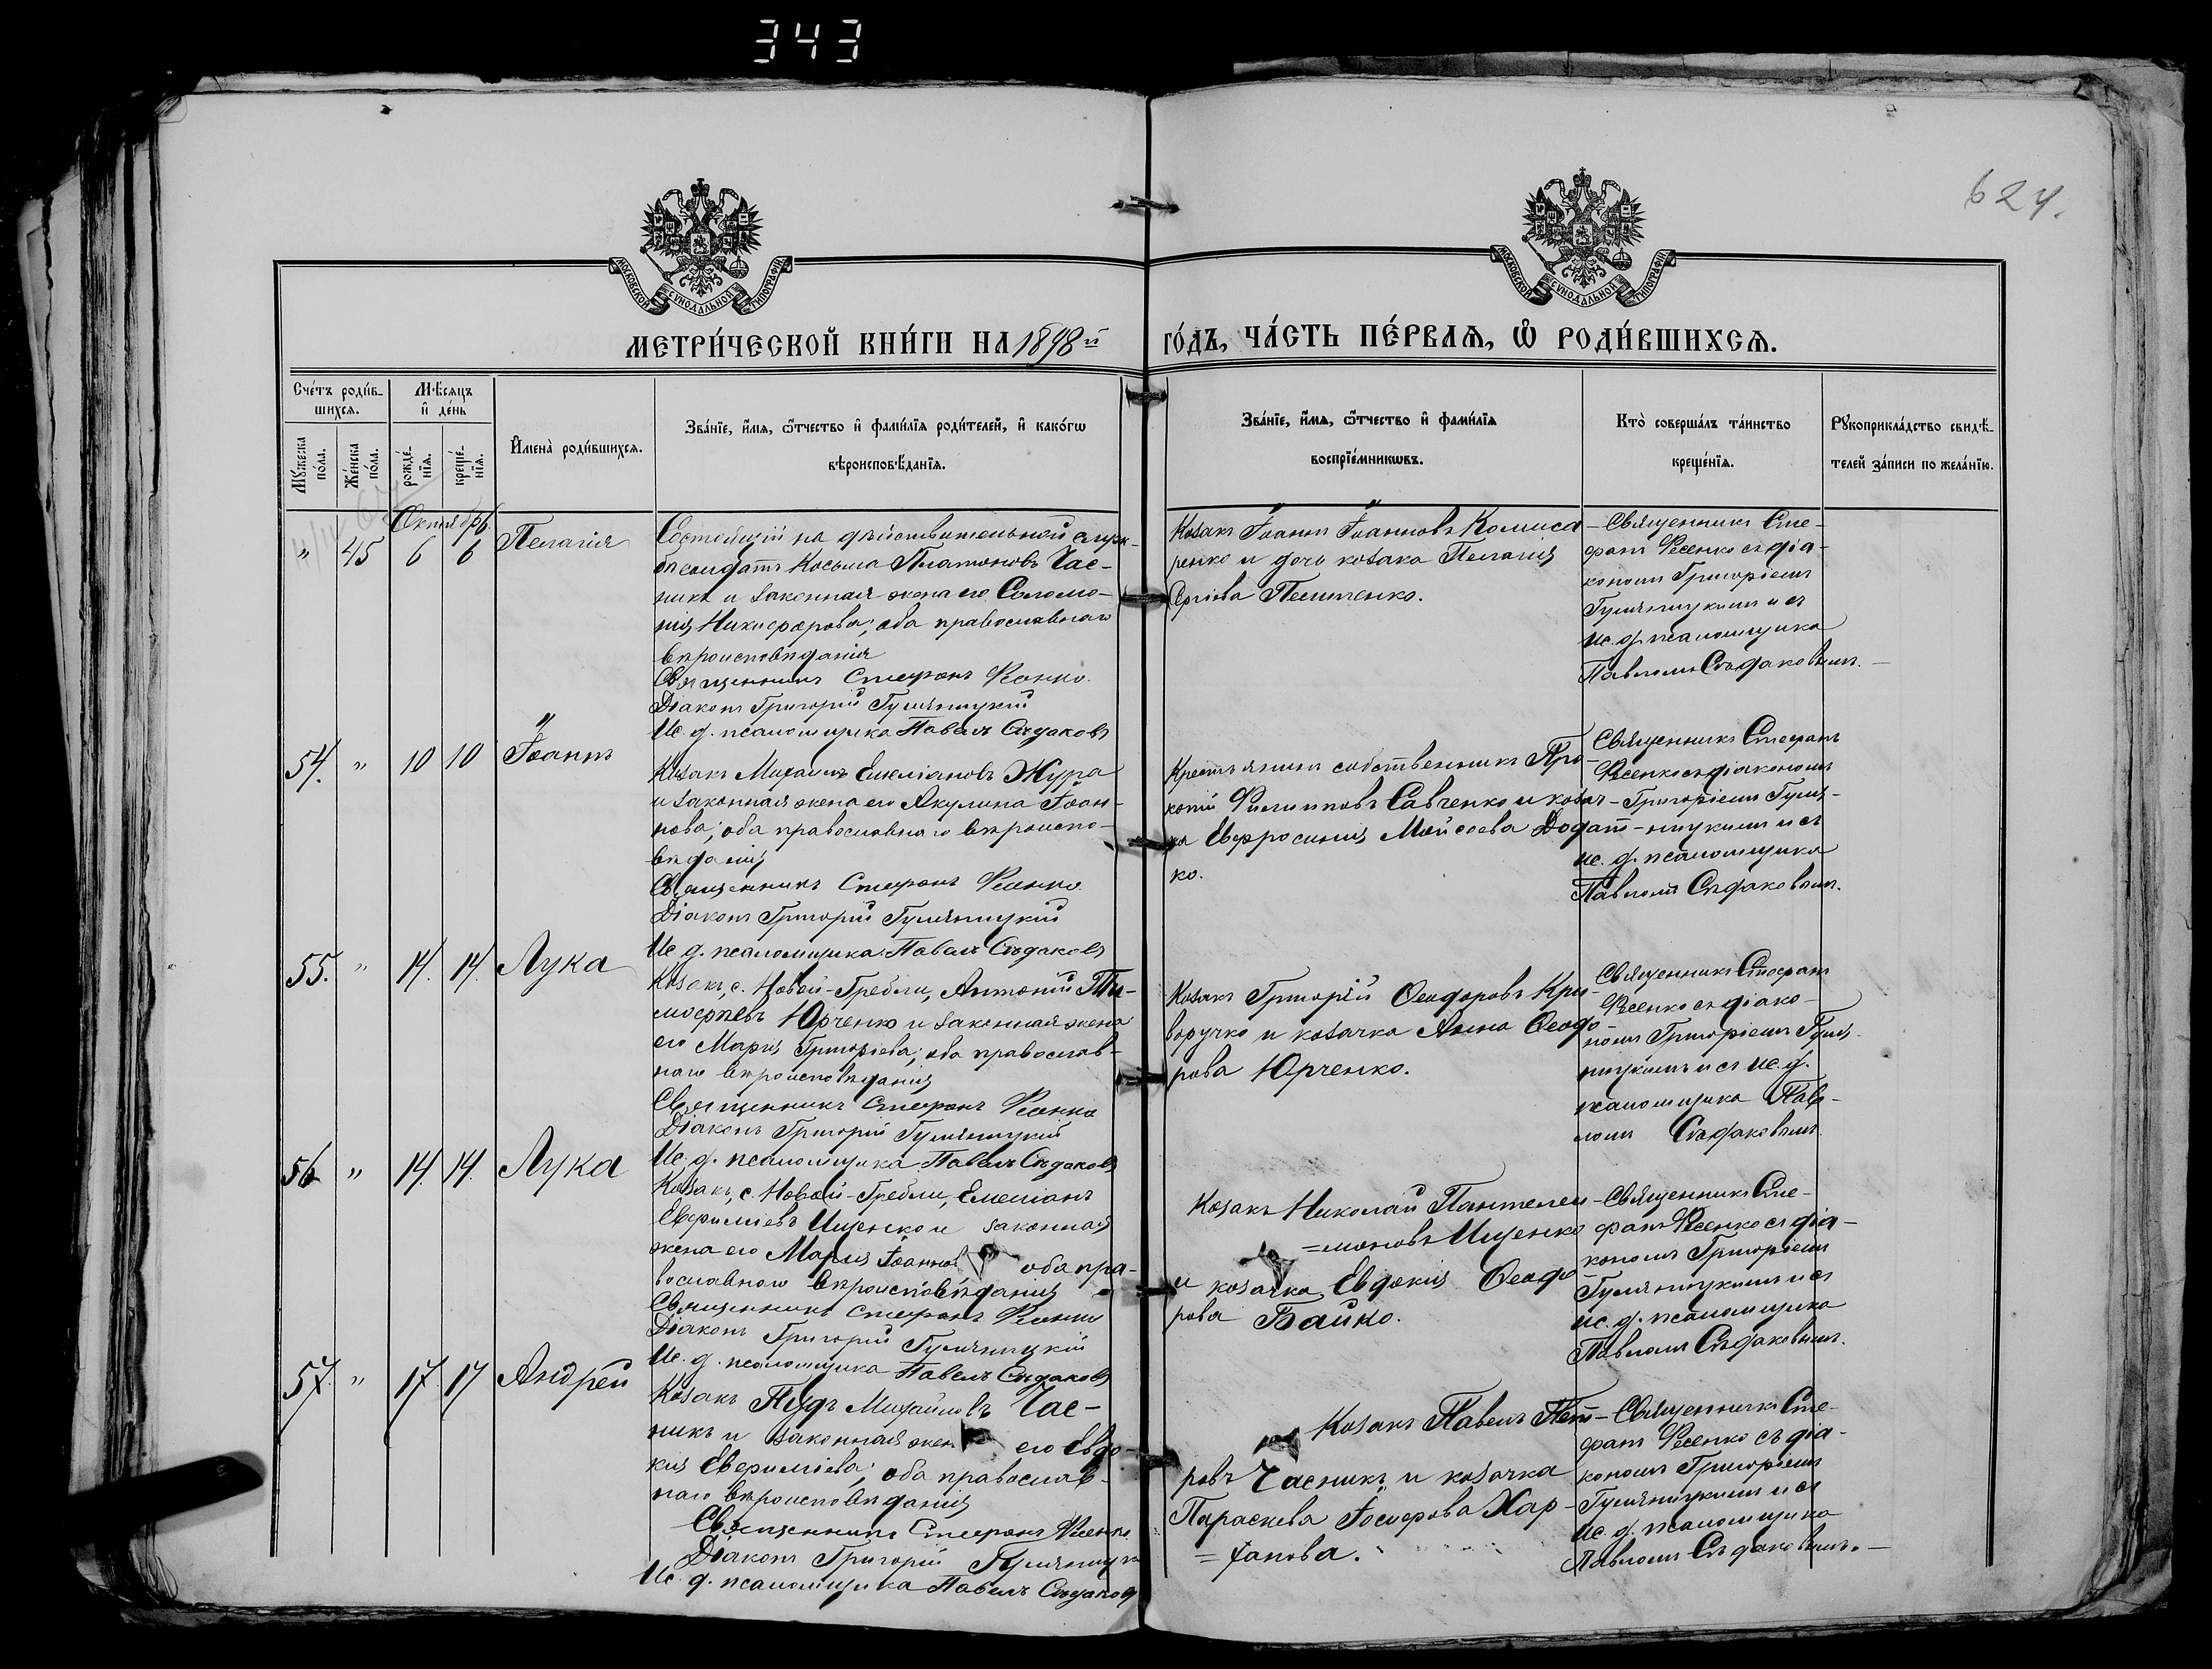 343
624.
МОСКОВСКОЙ СѴНОДАЛЬНОЙ ТИПОГРАФІИ
МОСКОВСКОЙ СѴНОДАЛЬНОЙ ТИПОГРАФІИ
МЕТРИ́ЧЕСКОЙ КНИ́ГИ НА 1898й
ГО́ДЪ, ЧА́СТЬ ПЕ́РВАѦ, Ѽ РОДИ́ВШИХСѦ.
Сче́тъ роди́в-
шихсѧ.
Мꙋ́жеска по́ла.
Же́нска по́ла.
Мѣ́сѧцъ
и҆ де́нь
рожде́-
нїѧ.
креще́-
нїѧ.
И҆мена̀ роди́вшихсѧ.
Зва́нїе, и҆́мѧ, ѻ҆́тчество и҆ фами́лїѧ роди́телей, и҆ како́гѡ
вѣроисповѣ́данїѧ.
Зва́нїе, и҆́мѧ, ѻ҆́тчество и҆ фами́лїѧ
воспрїе́мникѡвъ.
Кто̀ соверша́лъ та́инство
креще́нїѧ.
Рꙋкоприкла́дство свидѣ́-
телей за́писи по жела́нїю.
Октябрь
" 45 6 6 Пелагія
Состоящій на дѣйствительной служ-
бѣ солдатъ Косьма Платоновъ Час-
никъ и законная жена его Соломо-
нія Никифорова; оба православнаго
вѣроисповѣданія
Священникъ Стефанъ Фесенко
Діаконъ Григорій Гумяницкій
Ис. д. псаломщика Павелъ Съдаковъ
Козакъ Іоаннъ Іоанновъ Комиса-
ренко и дочь козака Пелагія
Сергіева Пелипенко.
Священникъ Сте-
фанъ Фесенко съ діа-
кономъ Григоріемъ
Гумяницкимъ и съ
ис. д. псаломщика
Павломъ Съдаковымъ.
54. " 10 10 Іоаннъ
Козакъ Михаилъ Емеліановъ Жура
и законная жена его Акулина Іоан-
нова; оба православнаго вѣроиспо-
вѣданія
Священникъ Стефанъ Фесенко
Діаконъ Григорій Гумяницкій
Ис. д. псаломщика Павелъ Съдаковъ
Крестьянинъ собственникъ Про-
копій Филипповъ Савченко и козач-
ка Евфросинія Мойсеева Додат-
ко.
Священникъ Стефанъ
Фесенко съ діакономъ
Григоріемъ Гумя-
ницкимъ и съ
ис. д. псаломщика
Павломъ Съдаковымъ.
55. " 14. 14. Лука
Козакъ, с. Новой-Гребли, Антоній Ти-
мофѣевъ Юрченко и законная жена
его Марія Григоріева; оба православ-
наго вѣроисповѣданія
Священникъ Стефанъ Фесенко
Діаконъ Григорій Гумяницкій
Ис. д. псаломщика Павелъ Съдаковъ
Козакъ Григорій Ѳеодоровъ Кри-
воручко и козачка Анна Ѳеодо-
рова Юрченко.
Священникъ Стефанъ
Фесенко съ діако-
номъ Григоріемъ Гумя-
ницкимъ и съ ис. д.
псаломщика Пав-
ломъ Съдаковымъ.
56 " 14. 14. Лука
Козакъ, с. Новой-Гребли, Емеліанъ
Евфиміевъ Ищенко и законная
жена его Марія Іоаннов оба пра-
вославнаго вѣроисповѣданія
Священникъ Стефанъ Фесенко
Діаконъ Григорій Гумяницкій
Ис. д. псаломщика Павелъ Съдаковъ
Козакъ Николай Пантелеи-
=моновъ Ищенко
и козачка Евдокія Ѳеодо
рова Байко.
Священникъ Сте-
фанъ Фесенко съ діа-
кономъ Григоріемъ
Гумяницкимъ и съ
ис. д. псаломщика
Павломъ Съдаковымъ.
57. " 17. 17 Андрей
Козакъ Пудъ Михайловъ Час-
никъ и законная жен его Евдо-
кія Евфиміева; оба православ-
наго вѣроисповѣданія
Священникъ Стефанъ Фесенко
Діаконъ Григорій Гумяницкій
Ис. д. псаломщика Павелъ Съдаковъ
Козакъ Павелъ Пет-
ровъ Часникъ и козачка
Параскева Іосифова Хар-
=ханова.
Священникъ Сте-
фанъ Фесенко съ діа-
кономъ Григоріемъ
Гумяницкимъ и съ
ис. д. псаломщика
Павломъ Съдаковымъ.